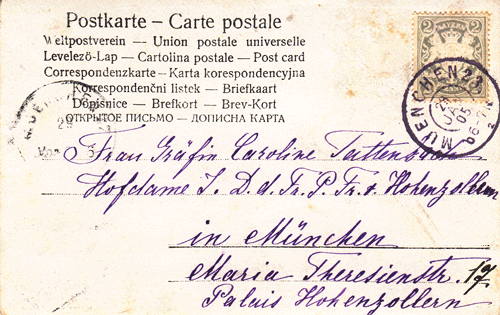 Postkarte – Carte postale
Weltpostverein — Union postale universelle
Levelező-Lap — Cartolina postale — Post card
Correspondenzkarte — Karta korespondencyjna
Korrespondenční listek — Briefkaart
Dopisnice — Brefkort — Brev-Kort
ОТКРЫТОЕ ПИСЬМО — ДОПИСНА КАРТА
2 BAYERN 2
MUENCHEN
JAN
05
29
Vor
Frau Gräfin Caroline Tattenbach
Hofdame I. D. d. Fr. P. Fr. v. Hohenzollern
in München
Maria Theresienstr. 17
Palais Hohenzollern